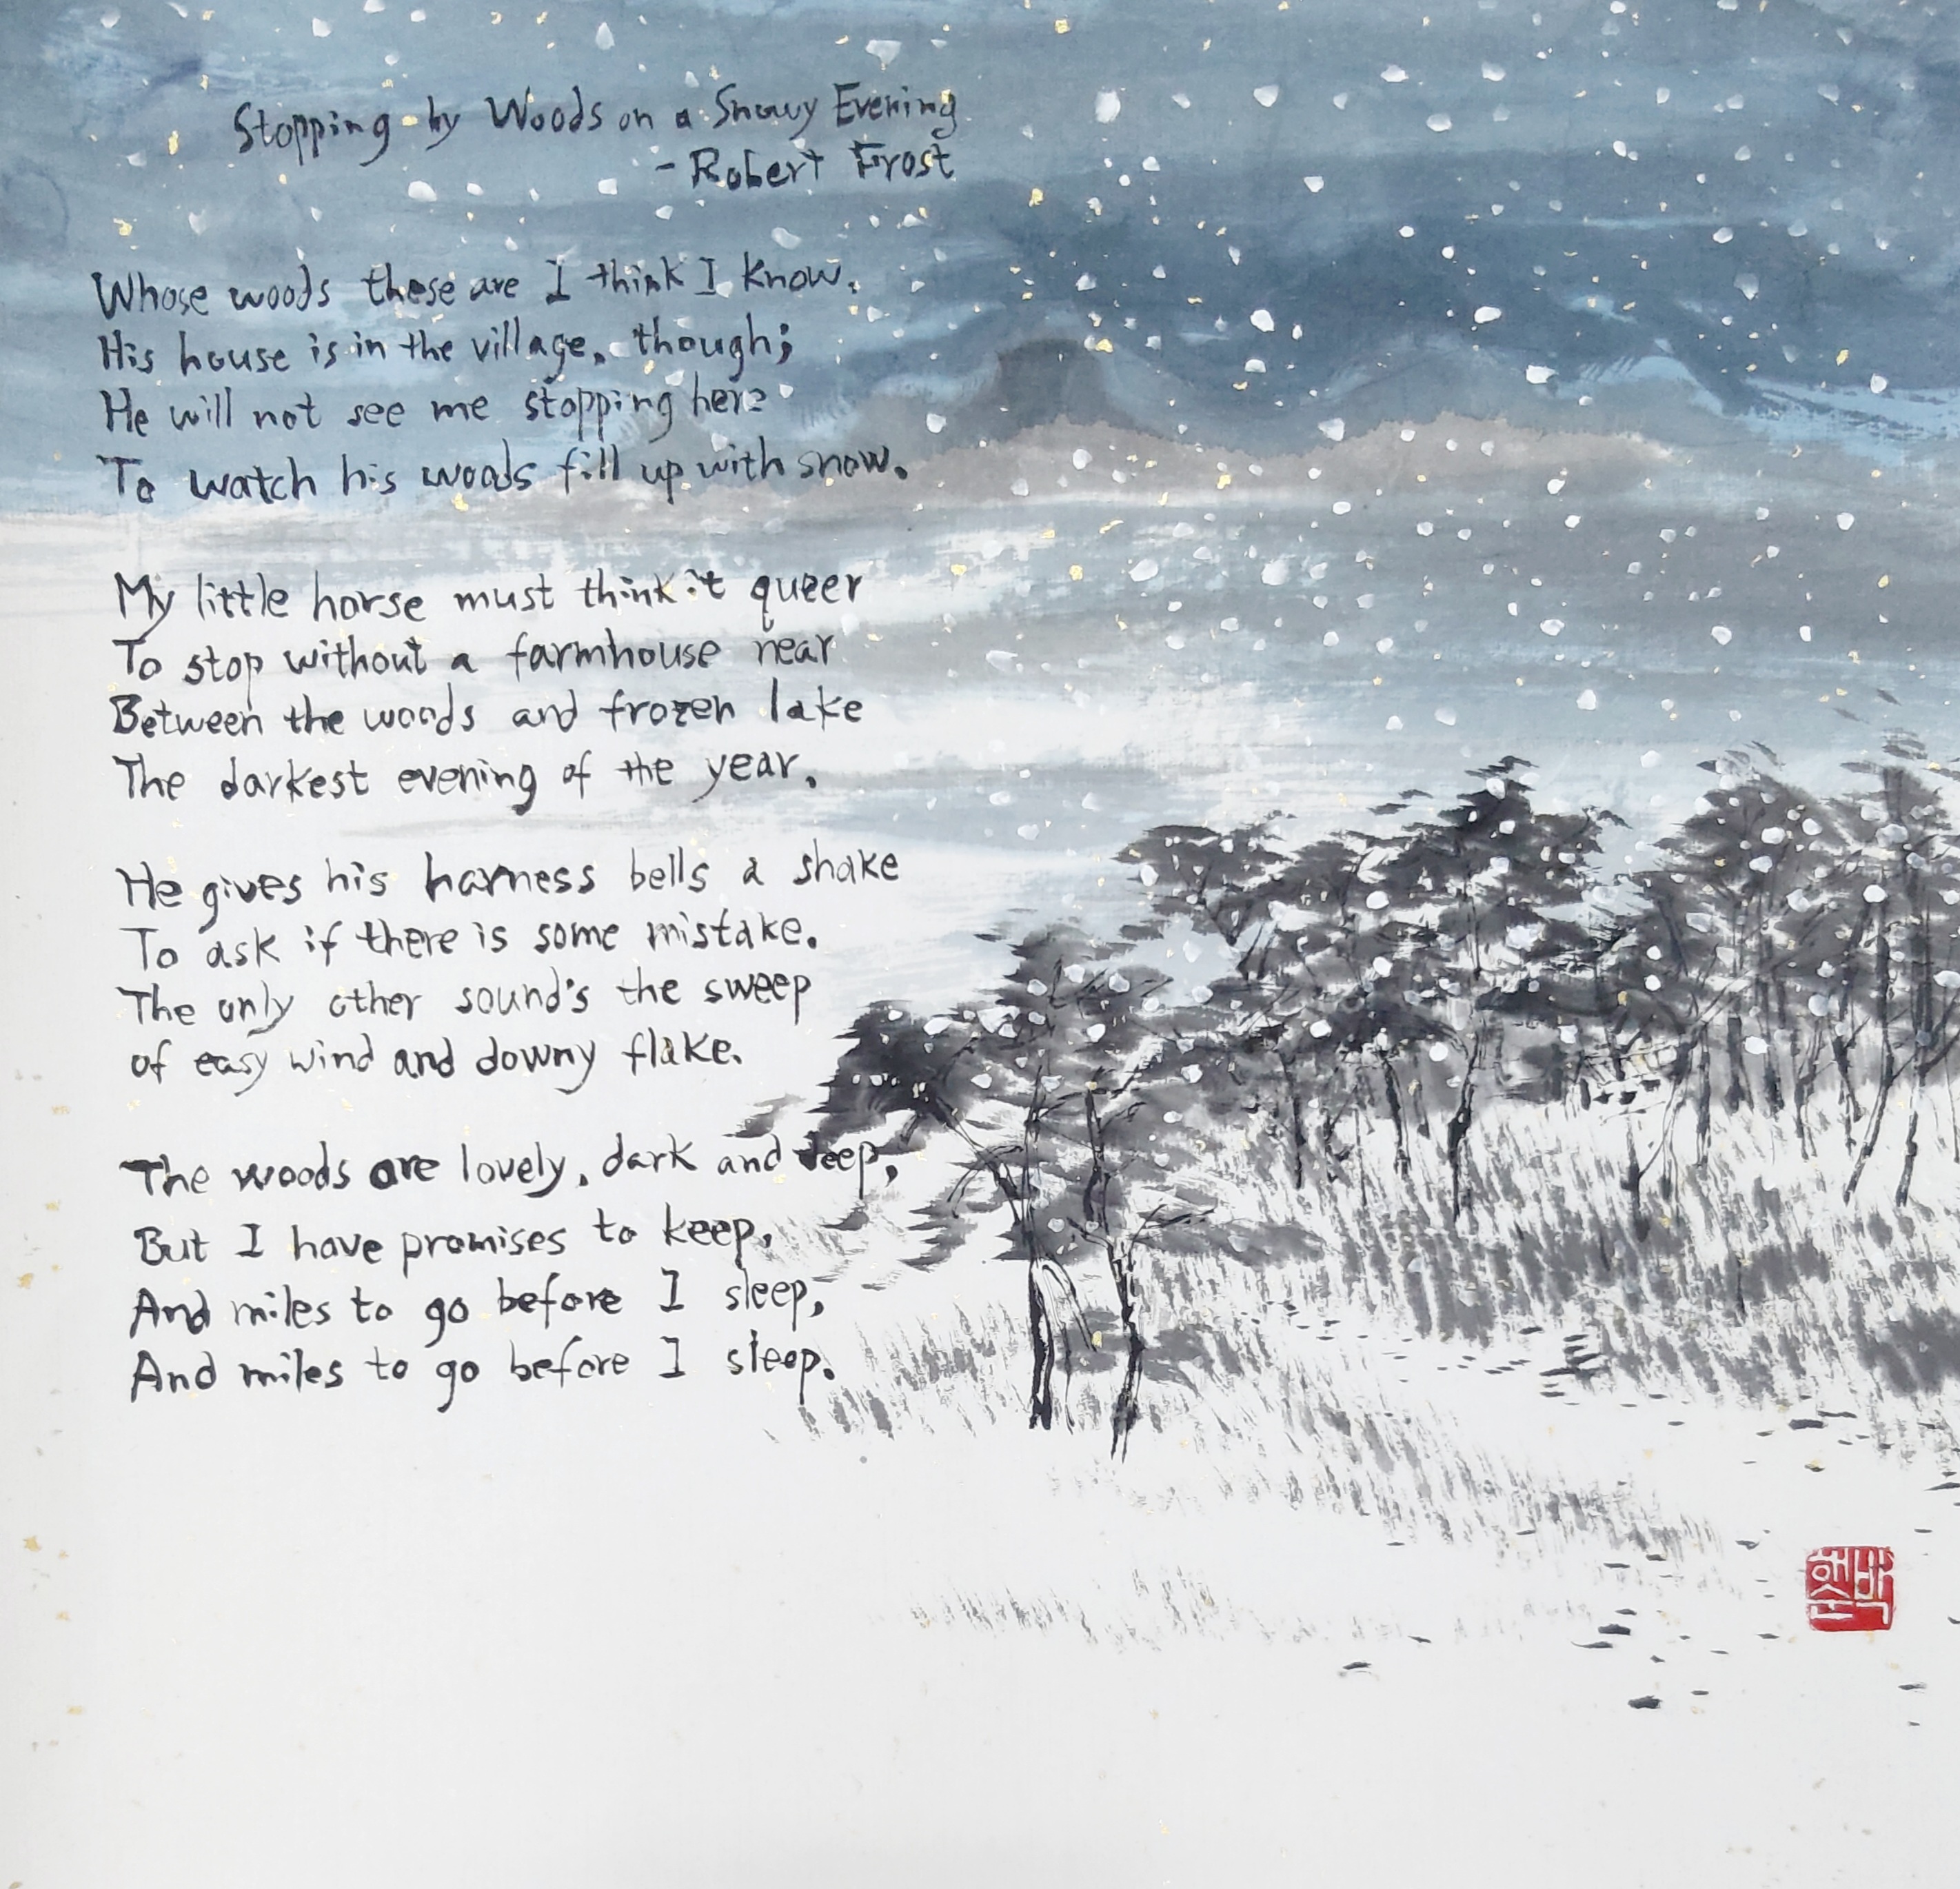 Stopping by Woods on a Snowy Evening
- Robert Frost
Whose woods these are I think I know.
His house is in the village, though;
He will not see me stopping here
To watch his woods fill up with snow.
My little horse must think it queer
To stop without a farmhouse near
Between the woods and frozen lake
The darkest evening of the year.
He gives his harness bells a shake
To ask if there is some mistake.
The only other sound's the sweep
of easy wind and downy flake.
The woods are lovely, dark and deep,
But I have promises to keep,
And miles to go before I sleep,
And miles to go before I sleep.
박해순